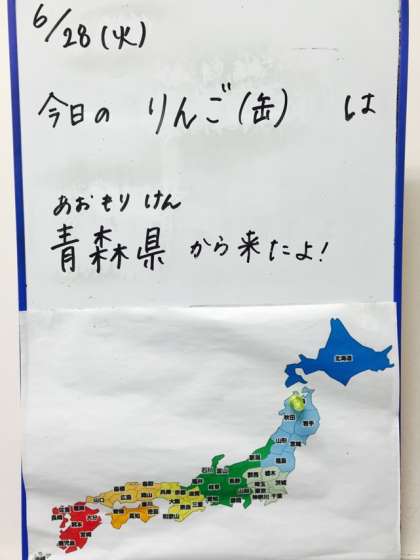 6/28(火)
今日の りんご(缶) は
あおもり けん
青森県 から来たよ!
北海道
秋田
岩手
山形
宮城
福島
新潟
石川
富山
群馬
栃木
長野
茨城
埼玉
東京
神奈川
千葉
山梨
静岡
岐阜
愛知
福井
滋賀
京都
兵庫
大阪
奈良
三重
和歌山
鳥取
島根
岡山
広島
山口
香川
徳島
愛媛
高知
福岡
佐賀
長崎
大分
熊本
宮崎
鹿児島
沖縄